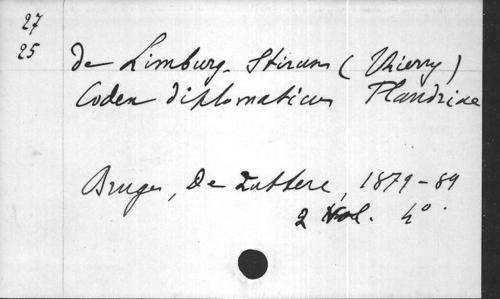 27
25
de Limburg-Stirum (Thierry)
Codex diplomaticus Flandriae
Bruges, De Zuttere, 1879-89
2 Vol. 4°.